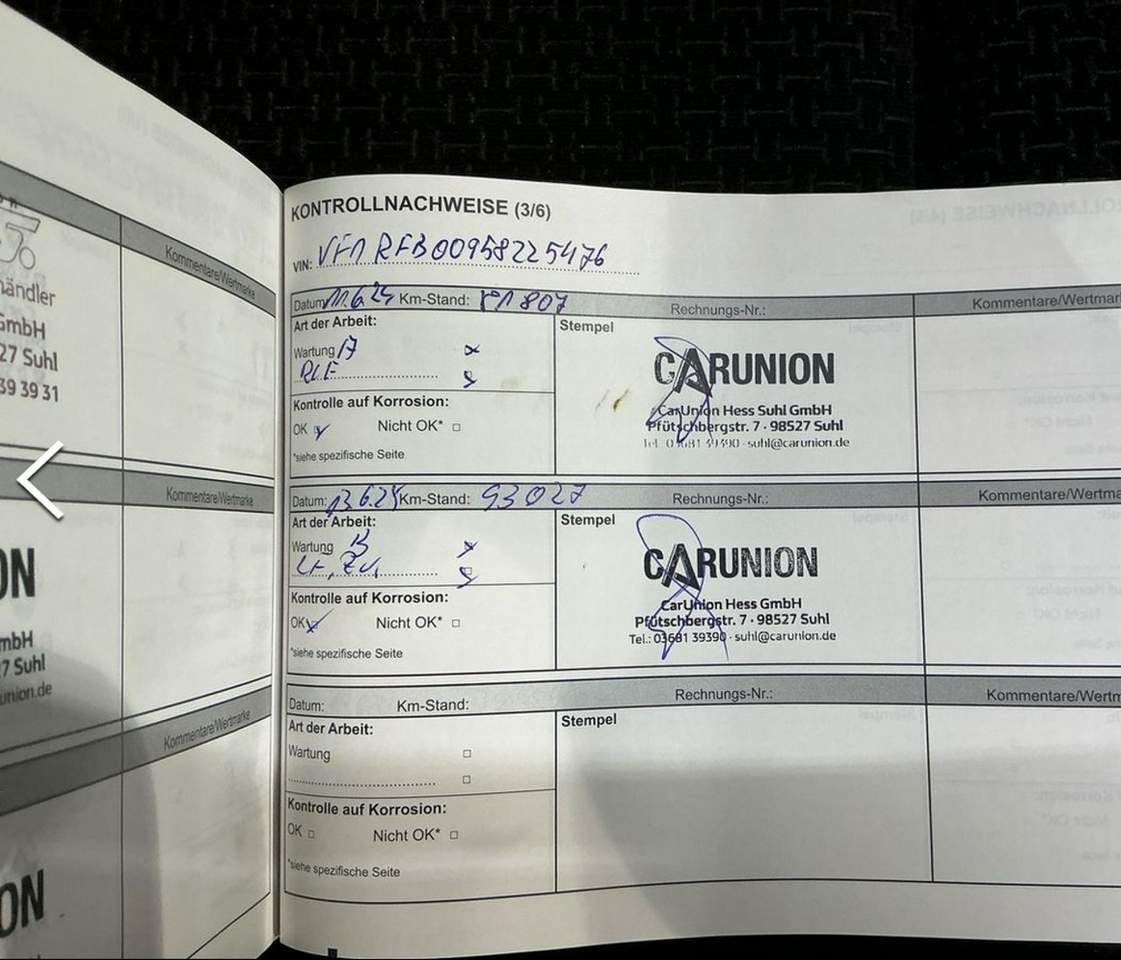 händler
GmbH
27 Suhl
39 39 31
Kommentare/Wertmarke
Kommentare/Wertmarke
ON
mbH
7 Suhl
union.de
Kommentare/Wertmarke
ON
KONTROLLNACHWEISE (3/6)
VIN: VF1RFB00958225476
Datum: 11.6.24 Km-Stand: 81 807 Rechnungs-Nr.: Kommentare/Wertmar
Art der Arbeit: Stempel
Wartung
CARUNION
CarUnion Hess Suhl GmbH
Pfütschbergstr. 7 · 98527 Suhl
Tel. 03681 39390 · suhl@carunion.de
Kontrolle auf Korrosion:
OK Nicht OK*
*siehe spezifische Seite
Datum: 13.6.25 Km-Stand: 93 027 Rechnungs-Nr.: Kommentare/Wertma
Art der Arbeit: Stempel
Wartung
CARUNION
CarUnion Hess GmbH
Pfütschbergstr. 7 · 98527 Suhl
Tel.: 03681 39390 · suhl@carunion.de
Kontrolle auf Korrosion:
OK Nicht OK*
*siehe spezifische Seite
Datum: Km-Stand: Rechnungs-Nr.: Kommentare/Wertm
Art der Arbeit: Stempel
Wartung
Kontrolle auf Korrosion:
OK Nicht OK*
*siehe spezifische Seite